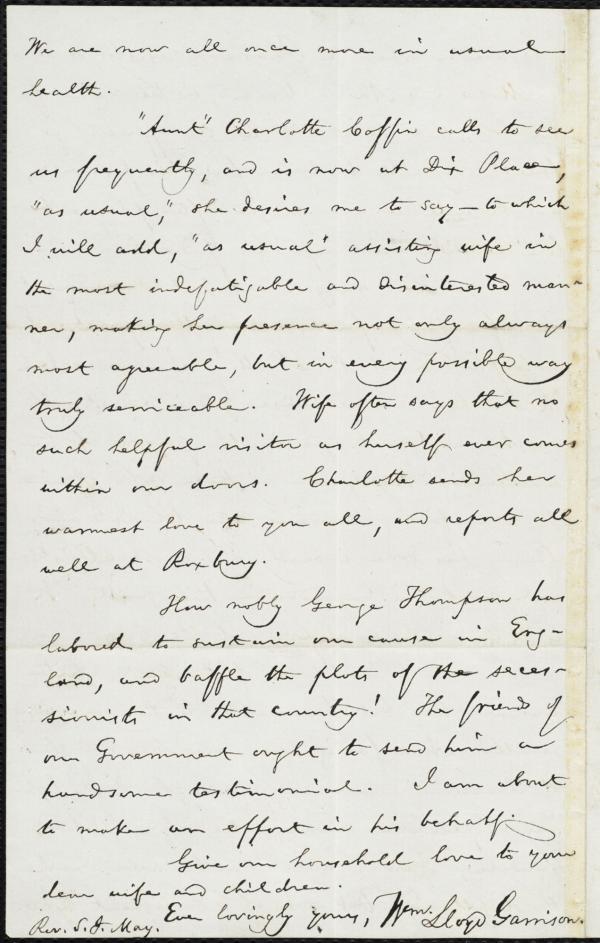 We are now all once more in usual
health.
"Aunt" Charlotte Coffin calls to see
us frequently, and is now at Dix Place,
"as usual," she desires me to say — to which
I will add, "as usual" assisting wife in
the most indefatigable and disinterested man-
ner, making her presence not only always
most agreeable, but in every possible way
truly serviceable. Wife often says that no
such helpful visitor as herself ever comes
within our doors. Charlotte sends her
warmest love to you all, and reports all
well at Roxbury.
How nobly George Thompson has
labored to sustain our cause in Eng-
land, and baffle the plots of the seces-
sionists in that country! The friends of
our Government ought to send him a
handsome testimonial. I am about
to make an effort in his behalf.
Give our household love to your
dear wife and children.
Ever lovingly yours, Wm. Lloyd Garrison.
Rev. S. J. May.